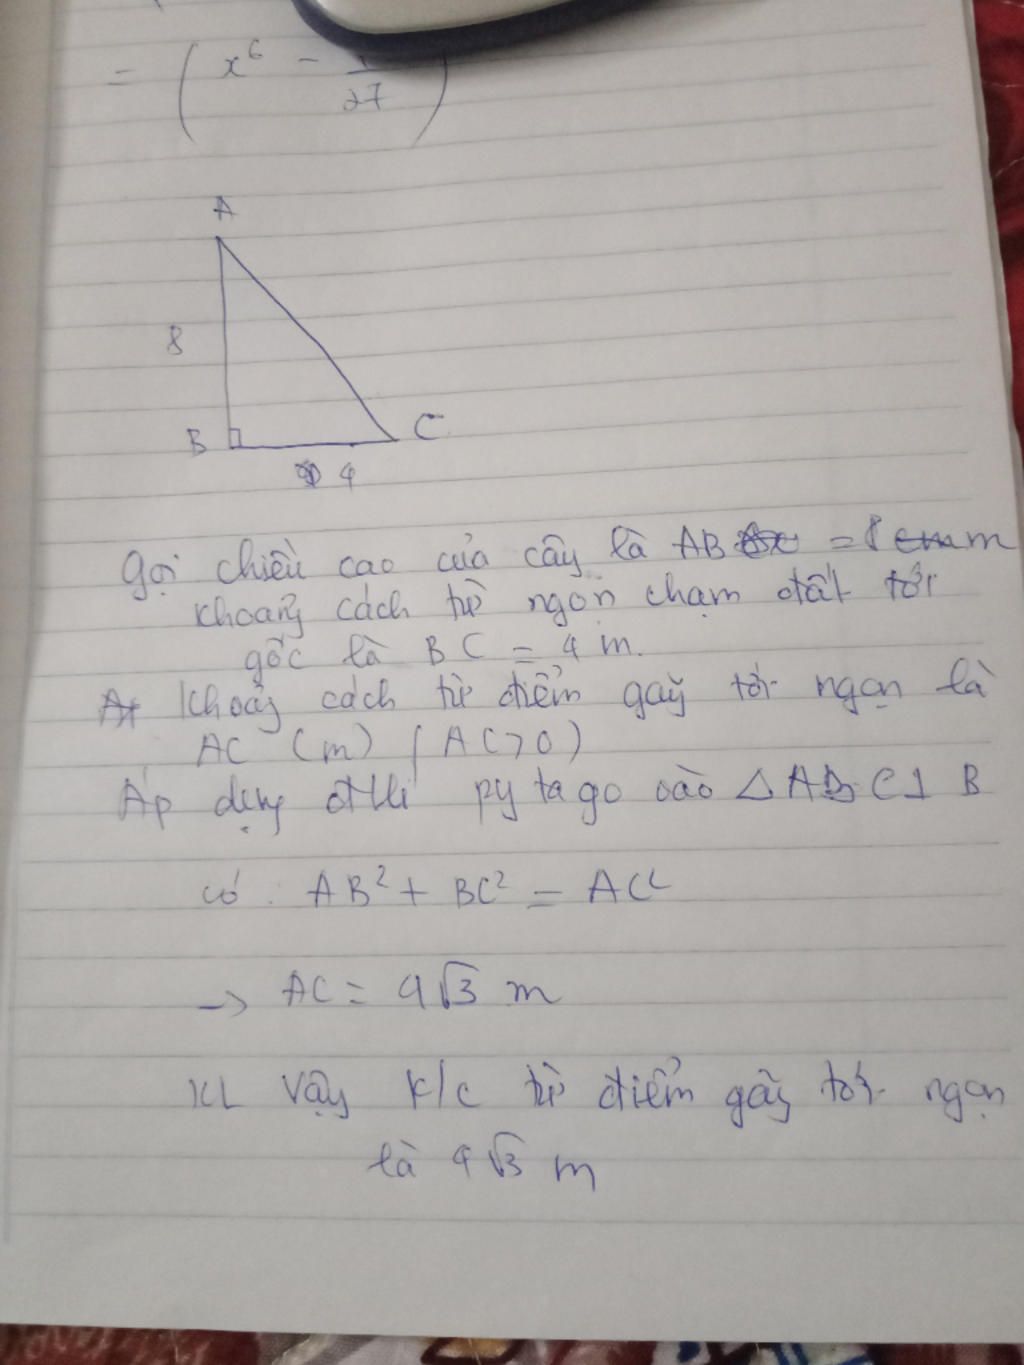 = (x⁶ - 1/27)
A
8
B
C
4
Gọi chiều cao của cây là AB = 8 m
khoảng cách từ ngọn chạm đất tới
gốc là BC = 4 m.
Khoảg cách từ điểm gãy tới ngọn là
AC (m) (AC>0)
Áp dụng đlí pytago vào △ABC⊥B
có: AB² + BC² = AC²
→ AC = 4√3 m
KL Vậy k/c từ điểm gãy tới ngọn
là 4√3 m